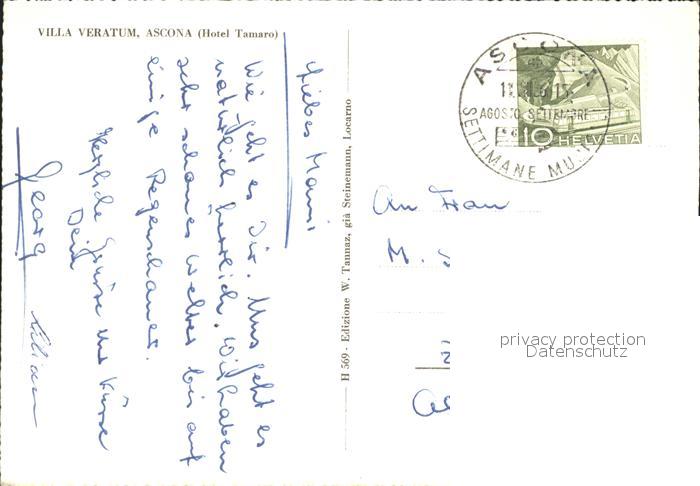 VILLA VERATUM, ASCONA (Hotel Tamaro)
Liebes Mami
Wie geht es Dir. Uns geht es
natürlich herrlich. Wir haben
sehr schönes Wetter bis auf
einige Regenschauer.
Herzliche Grüsse und Küsse
Dein
Georg
Lilian
H 569 - Edizione W. Tannaz, già Steinemann, Locarno
ASCONA
AGOSTO SETTEMBRE
SETTIMANE MU
10 HELVETIA
An Frau
M. S
privacy protection
Datenschutz